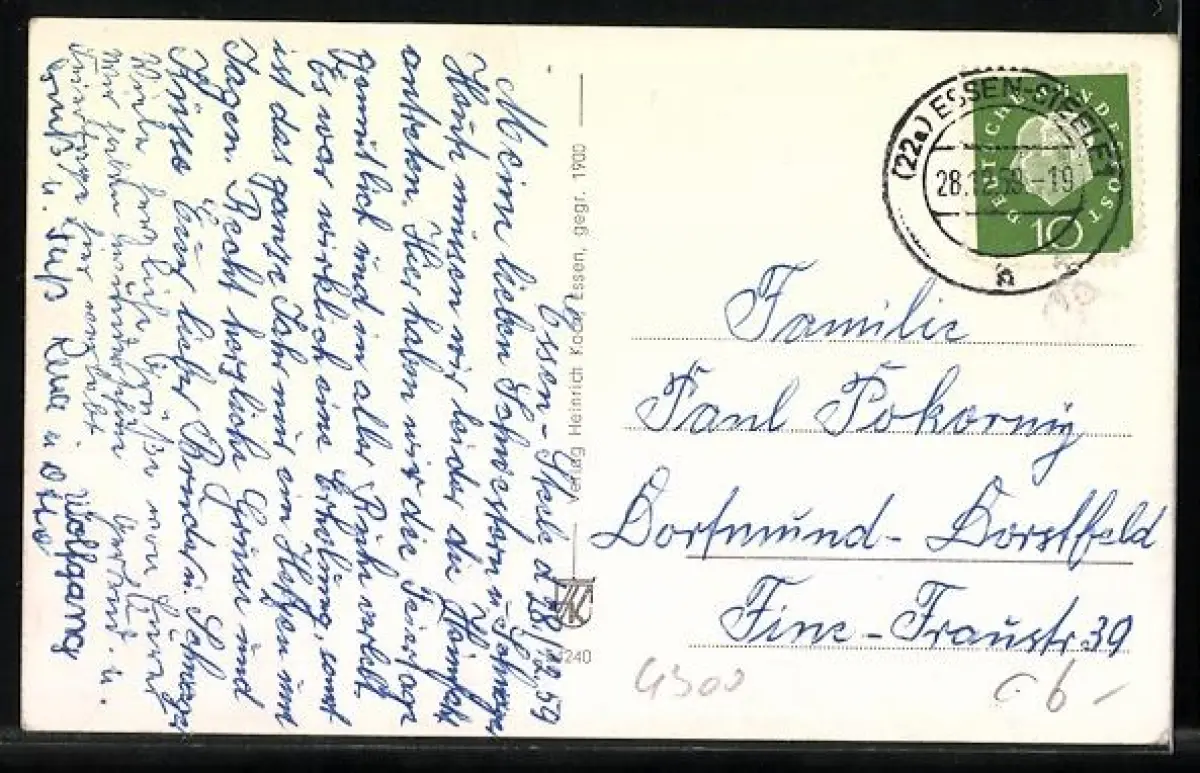 Essen-Steele d 28/12.59
Meine lieben Schwestern u Schwager
Heute müssen wir leider die Heimfahrt
antreten. Hier haben wir die Feiertage
gemütlich und in aller Ruhe verlebt.
Es war wirklich eine Erholung, sonst
ist das ganze Jahr nur ein Hetzen und
Jagen. Recht herzliche Grüsse und
Küsse Euer lieber Bruder u. Schwager
Viele herzliche Grüsse von
wir haben
Feiertage hier verlebt
Gruß u. Kuß u Otto
Wolfgang
Verlag Heinrich Koch, Essen, gegr. 1900
HK
1240
(22a) ESSEN-STEELE
28.12.59.-19
h
DEUTSCHE BUNDESPOST
10
Familie
Paul Pokorny
Dortmund-Dorstfeld
Fine-Fraustr 39
4300
6-